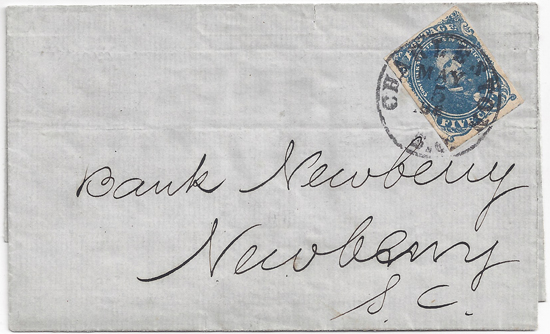 POSTAGE
FIVE CENTS
MAY
5
Bank Newberry
Newberry
S. C.